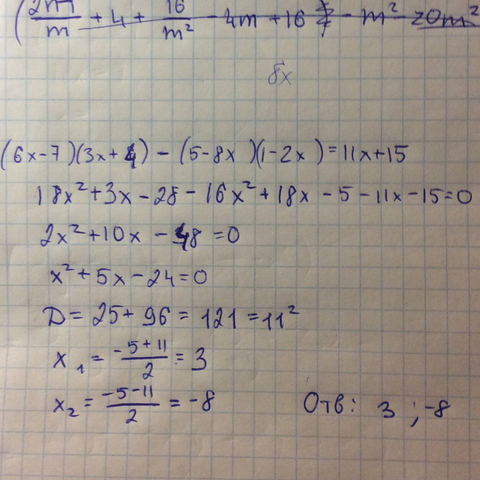 (2m/m + 4 + 16/m² - 4m + 16 - m² - 20m²
8x
(6x-7)(3x+4) - (5-8x)(1-2x) = 11x+15
18x²+3x-28-16x²+18x-5-11x-15=0
2x²+10x-48=0
x²+5x-24=0
D = 25+96 = 121 = 11²
x₁ = (-5+11)/2 = 3
x₂ = (-5-11)/2 = -8
Отв: 3 ; -8